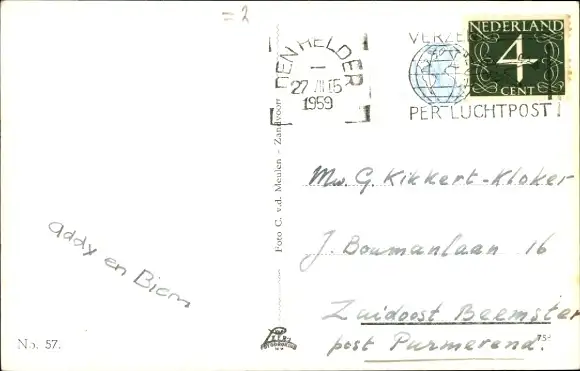 = 2
DEN HELDER
1959
VERZE
PER LUCHTPOST!
NEDERLAND
4
CENT
Foto C. v.d. Meulen - Zandvoort
Mw. G. Kikkert-Kloker
J. Boumanlaan 16
Zuidoost Beemster
post Purmerend.
addy en Biem
No. 57.